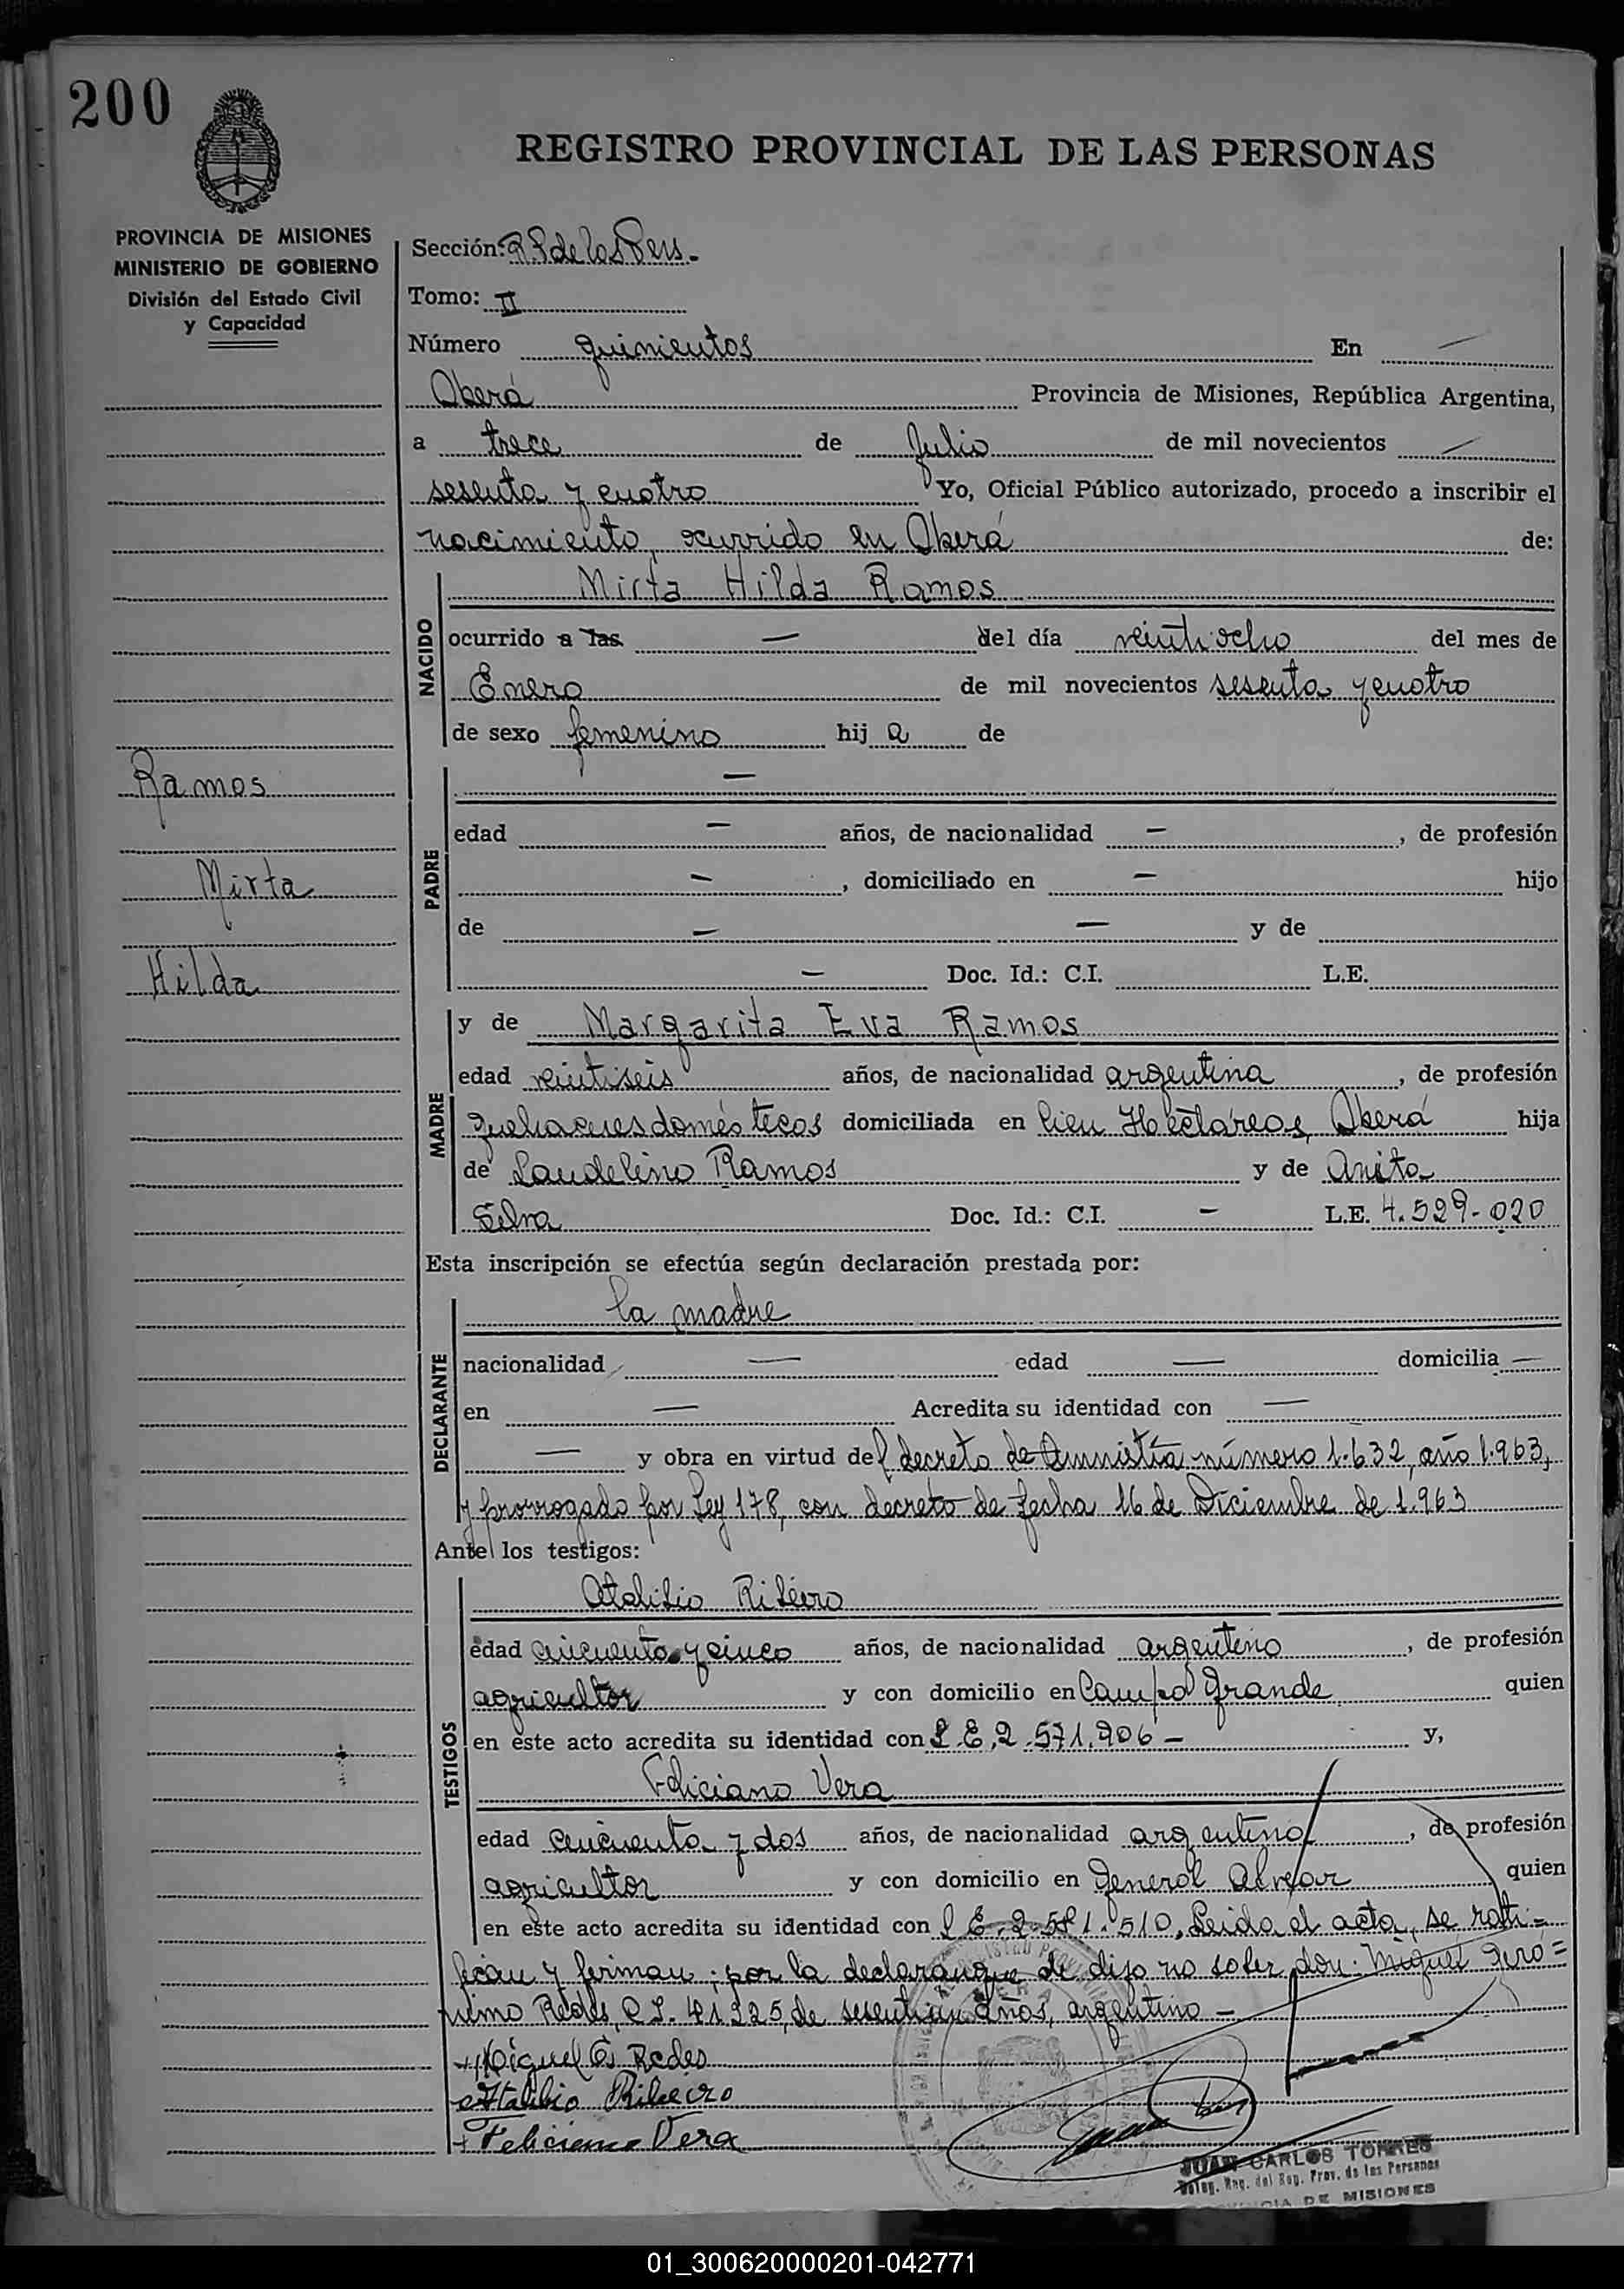 200
REGISTRO PROVINCIAL DE LAS PERSONAS
PROVINCIA DE MISIONES
MINISTERIO DE GOBIERNO
División del Estado Civil
y Capacidad
Sección: R.P. de las Pers.
Tomo: II
Número quinientos En —
Oberá Provincia de Misiones, República Argentina,
a trece de Julio de mil novecientos —
sesenta y cuatro Yo, Oficial Público autorizado, procedo a inscribir el
nacimiento, ocurrido en Oberá de:
NACIDO
Mirta Hilda Ramos
ocurrido a las — del día veintiocho del mes de
Enero de mil novecientos sesenta y cuatro
de sexo femenino hij a de
Ramos
Mirta
Hilda
PADRE
—
edad — años, de nacionalidad — , de profesión
— , domiciliado en — hijo
de — — y de
— Doc. Id.: C.I. L.E.
MADRE
y de Margarita Eva Ramos
edad veintiseis años, de nacionalidad argentina , de profesión
quehaceres domésticos domiciliada en Cien Hectáreas, Oberá hija
de Laudelino Ramos y de Anita
Selva Doc. Id.: C.I. — L.E. 4.529-020
Esta inscripción se efectúa según declaración prestada por:
DECLARANTE
la madre
nacionalidad — edad — domicilia —
en — Acredita su identidad con —
— y obra en virtud del decreto de Amnistía número 1.632, año 1.963,
y prorrogado por Ley 178, con decreto de fecha 16 de Diciembre de 1.963
Ante los testigos:
TESTIGOS
Atalibio Ribeiro
edad cincuenta y cinco años, de nacionalidad argentino , de profesión
agricultor y con domicilio en Campo Grande quien
en este acto acredita su identidad con L.E, 2.571.906 — y,
Feliciano Vera
edad cincuenta y dos años, de nacionalidad argentino , de profesión
agricultor y con domicilio en General Alvear quien
en este acto acredita su identidad con L.E. 2.581.510, Leida el acta, se rati=
fican y firman; por la declarante que dijo no saber don: Miguel Geró=
nimo Redes, C.I. años, argentino —
Miguel G. Redes
Atalibio Ribeiro
+ Feliciano Vera
JUAN CARLOS TORRES
Deleg. Reg. del Reg. Prov. de las Personas
PROVINCIA DE MISIONES
01_300620000201-042771